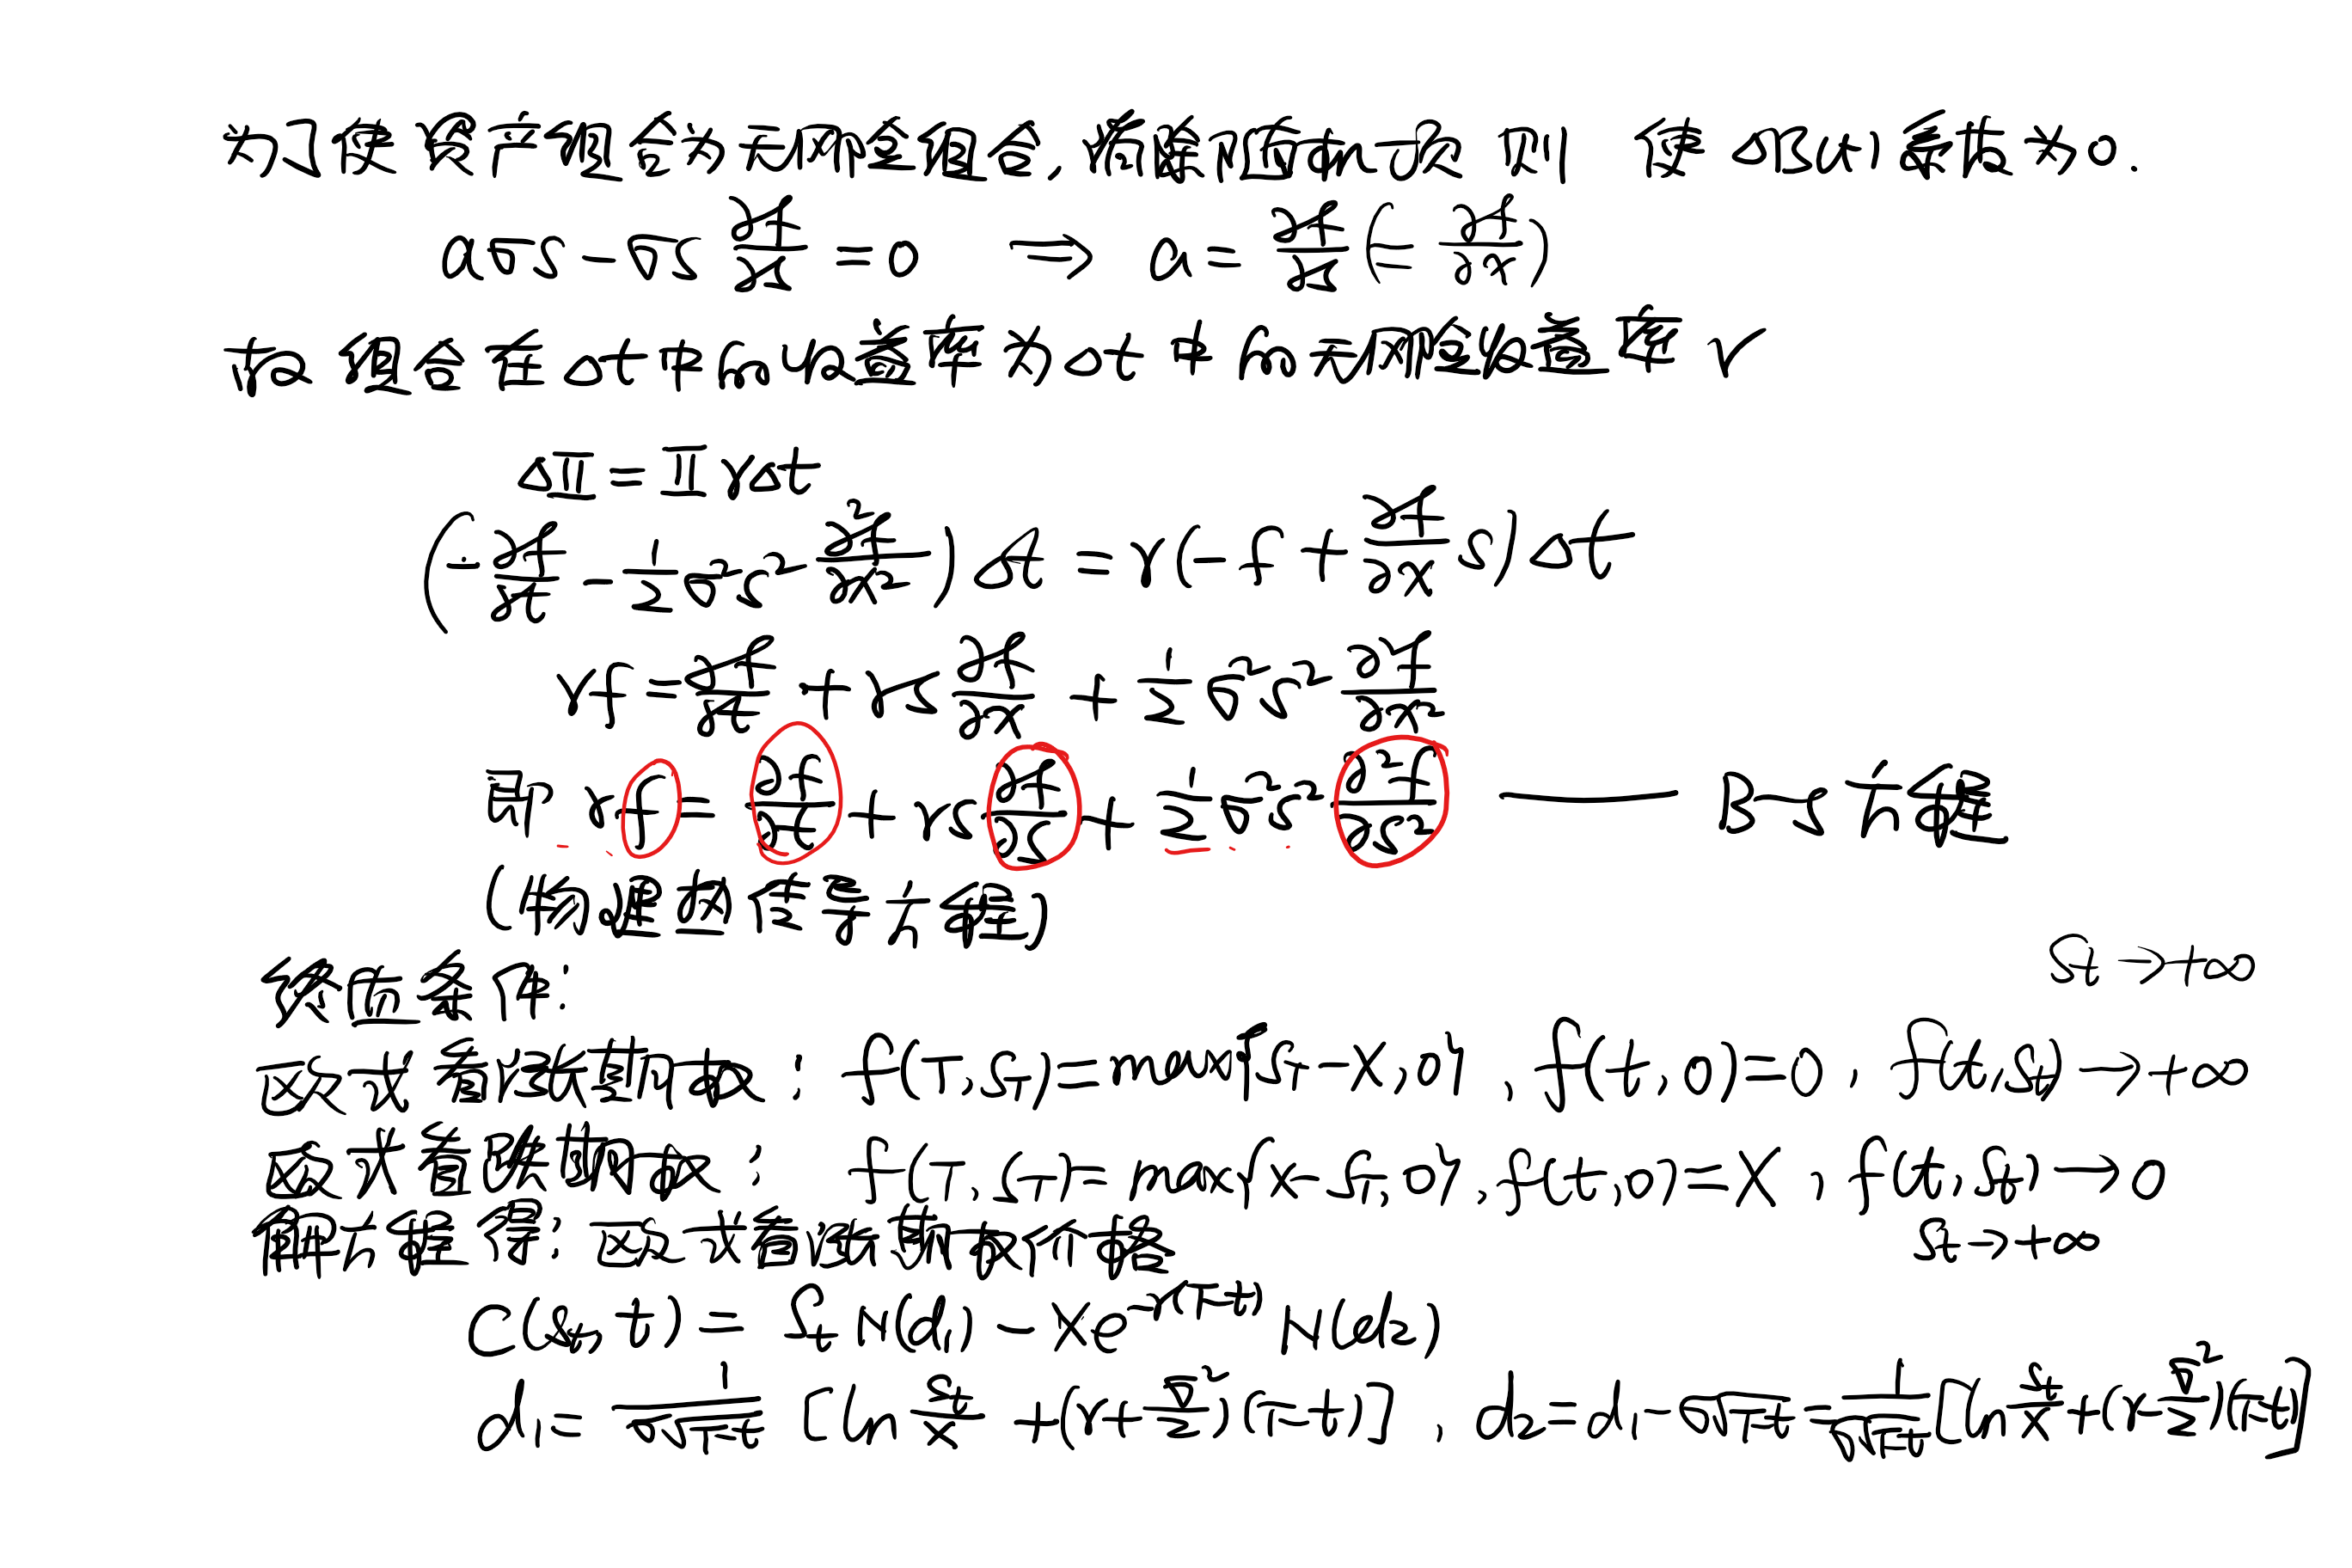 为了使资产组合为无风险组合,消除随机因素,则 使 ΔB(t) 系数为0.
aσS - σS ∂f/∂x = 0 ⇒ a = ∂f/∂x (= ∂f/∂x)
而组合在Δt时间收益率为Δt时间无风险收益率 r
ΔΠ = Π rΔt
(- ∂f/∂t - 1/2 σ²S² ∂²f/∂x²) Δt = r(-f + ∂f/∂x S) Δt
rf = ∂f/∂t + rS ∂f/∂x + 1/2 σ²S² ∂²f/∂x²
即 rf = ∂f/∂t + rS ∂f/∂S + 1/2 σ²S² ∂²f/∂S² —— B-S 方程
(物理热传导方程)
终值条件:
St → +∞
欧式看涨期权: f(T, ST) = max{ST - X, 0}, f(t, 0) = 0, f(t, St) → +∞
欧式看跌期权: f(T, ST) = max{X - ST, 0}, f(t, 0) = X, f(t, St) → 0
St → +∞
解方程得: 欧式看涨期权价格
C(St, t) = St N(d1) - Xe^{-r(T-t)} N(d2)
d1 = 1/(σ√(T-t)) [ln St/X + (r + σ²/2)(T-t)], d2 = d1 - σ√(T-t) = 1/(σ√(T-t)) [ln St/X + (r - σ²/2)(T-t)]